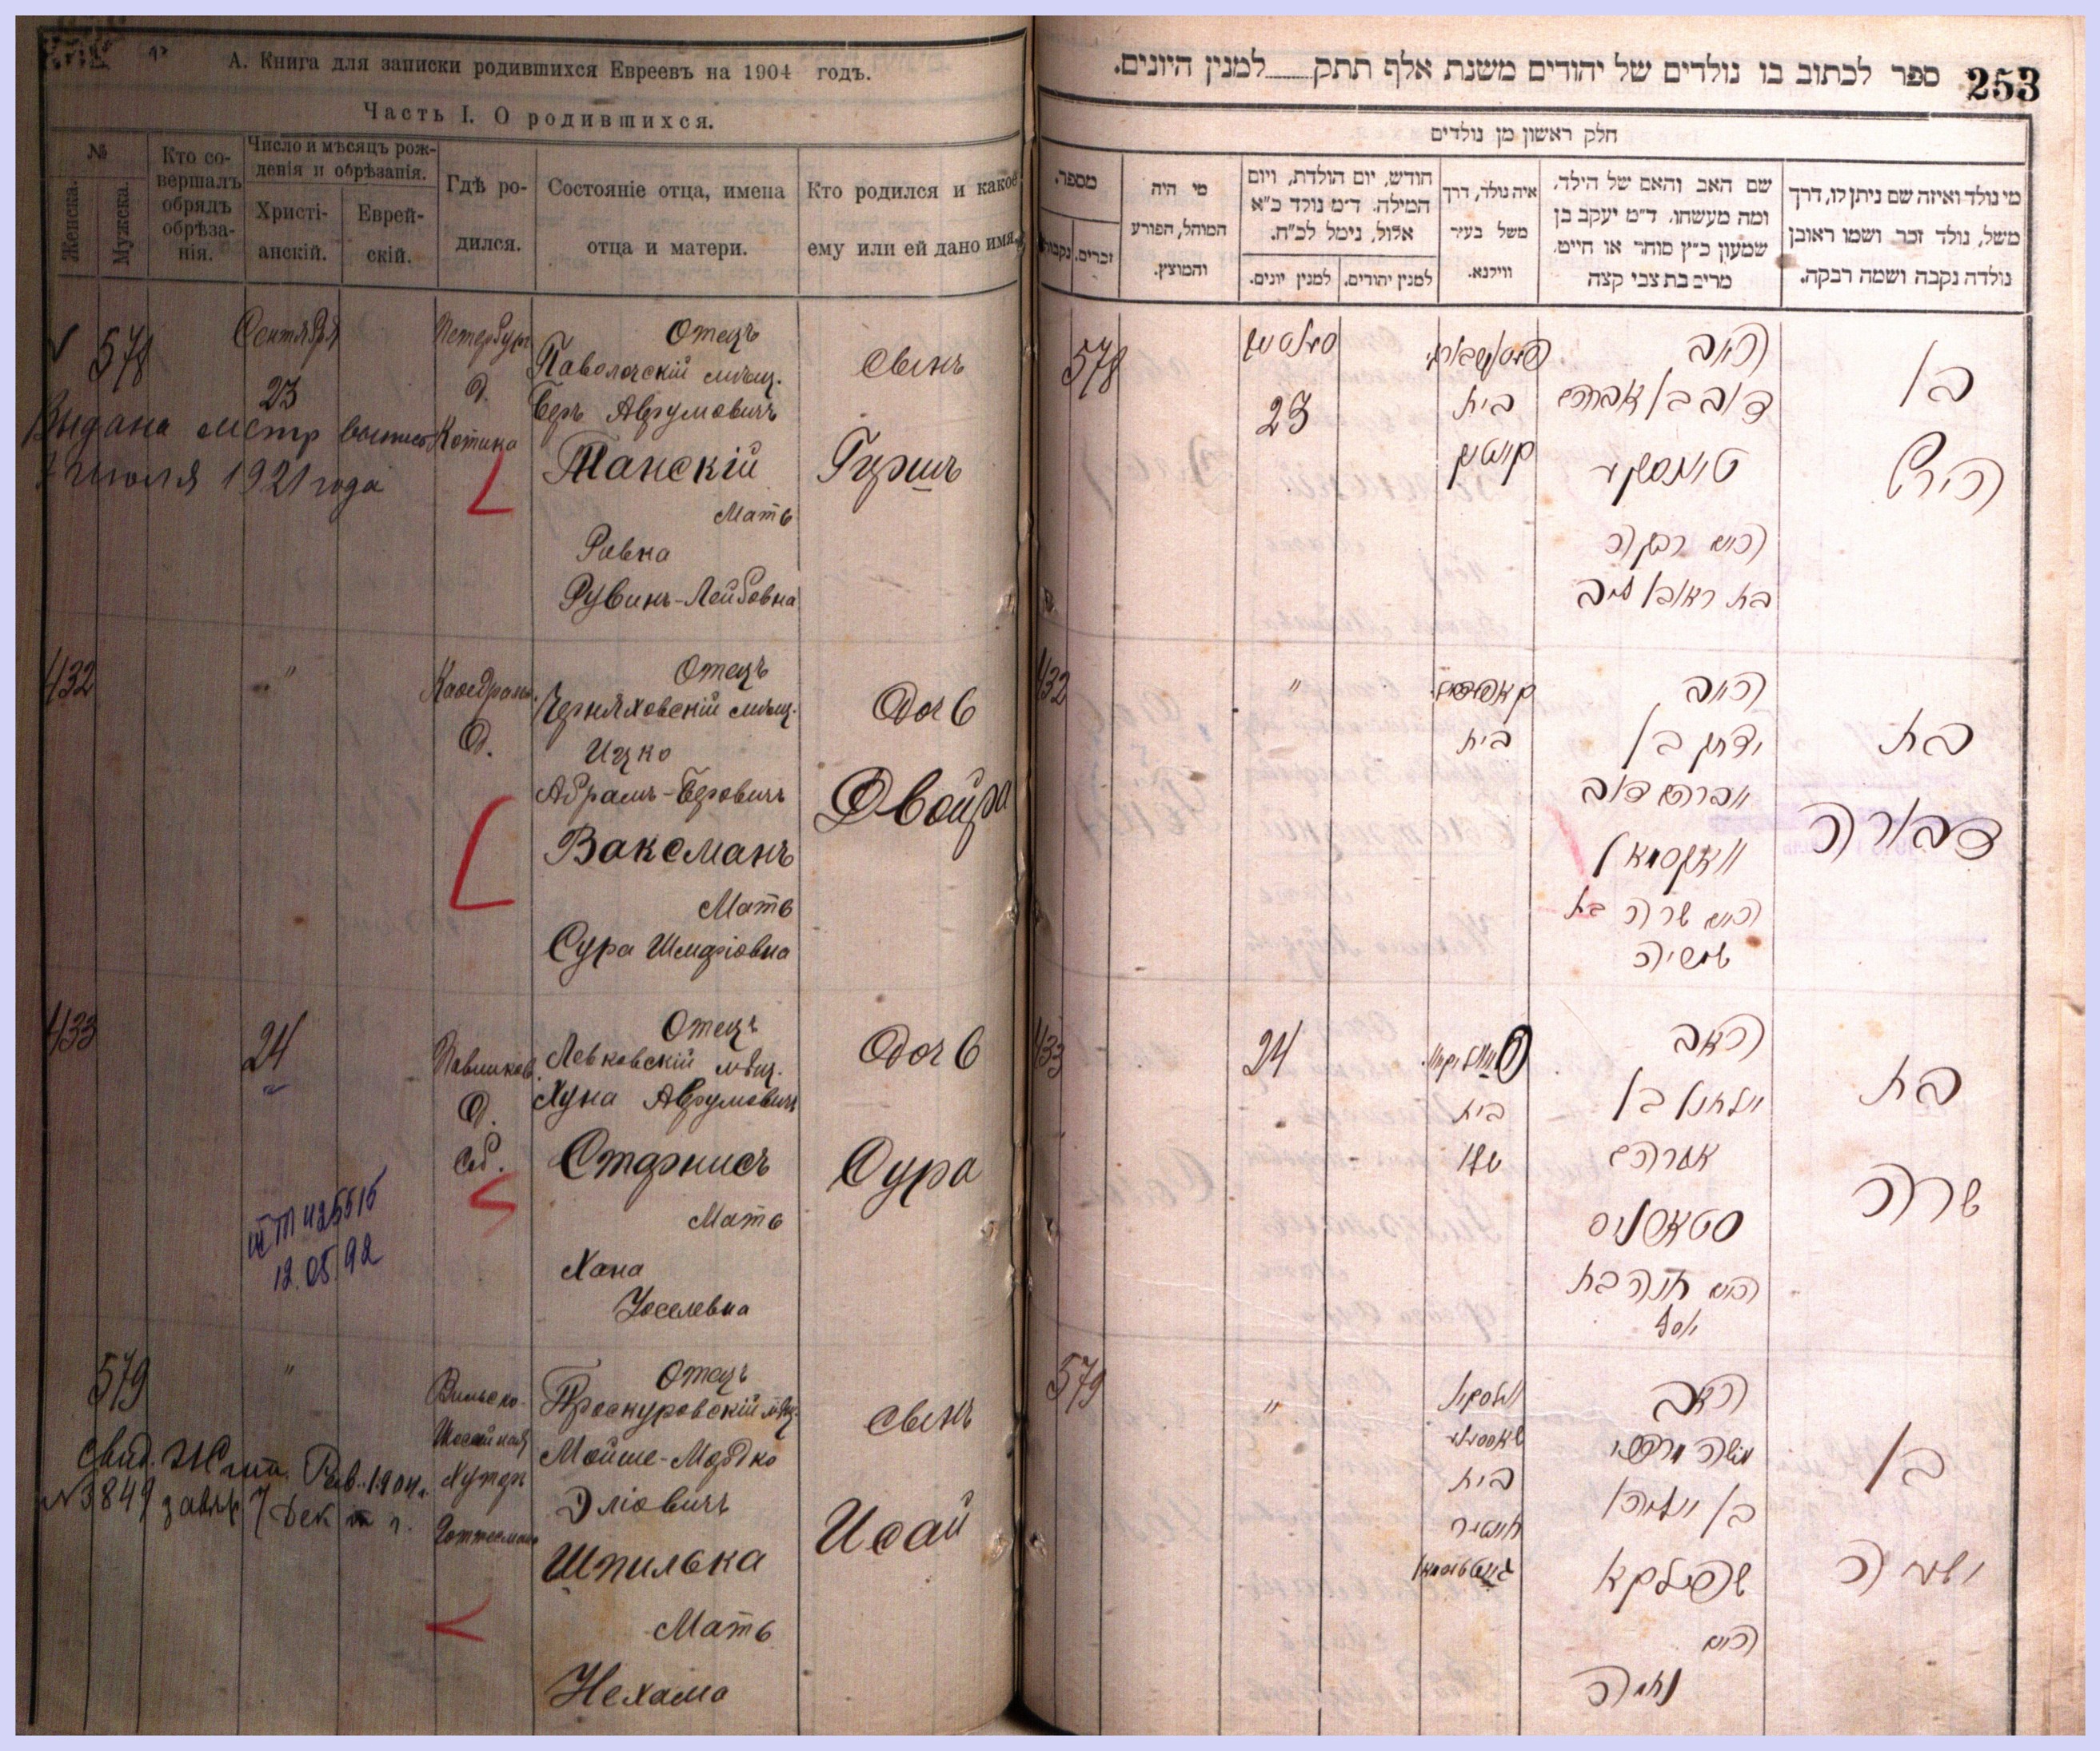 А. Книга для записки родившихся Евреевъ на 1904 годъ.
Часть I. О родившихся.
№
Женска.
Мужска.
Кто со-
вершалъ
обрядъ
обрѣза-
нія.
Число и мѣсяцъ рож-
денія и обрѣзанія.
Христі-
анскій.
Еврей-
скій.
Гдѣ ро-
дился.
Состояніе отца, имена
отца и матери.
Кто родился и какое
ему или ей дано имя.
578
Сентября
23
Выдана
7 июля 1921 года
Петербург
д.
Котика
Отецъ
Паволочскій мѣщ.
Беръ Аврумовичъ
Танскій
Мать
Ривка
Рувинъ-Лейбовна
Сынъ
Гершъ
432
"
Каѳедральн.
д.
Отецъ
Черняховскій мѣщ.
Ицко
Абрамъ-Беровичъ
Ваксманъ
Мать
Сура Шмаріовна
Дочь
Двойра
433
24
12.05.92
д.
соб.
Отецъ
Левковскій мѣщ.
Хуна Аврумовичъ
Старнисъ
Мать
Хана
Іоселевна
Дочь
Сура
579
"
Свид. Жит. Рав. 1904 г.
№3849
7 Дек
Вильско-
Шосейная
Хуторъ
Готтесмана
Отецъ
Проскуровскій мѣщ.
Мойше-Мордко
Эліовичъ
Шпилька
Мать
Нехама
Сынъ
Исай
253
ספר לכתוב בו נולדים של יהודים משנת אלף תתק למנין היונים.
חלק ראשון מן נולדים
מספר.
זכרים.
נקבות
מי היה
המוהל, הפורע
והמוצץ.
חודש, יום הולדת, ויום
המילה. ד״מ נולד כ״א
אלול, נימל לכ״ח.
למנין יונים.
למנין יהודים.
איה נולד, דרך
משל בעיר
ווילנא.
שם האב והאם של הילד,
ומה מעשהו. ד״מ יעקב בן
שמעון כ״ץ סוחר או חייט.
מרים בת צבי קצה
מי נולד ואיזה שם ניתן לו, דרך
משל, נולד זכר ושמו ראובן
נולדה נקבה ושמה רבקה.
578
23
בית
האב
דוב בן אברהם
האם רבקה
בת ראובן ליב
בן
הירש
432
"
בית
האב
יצחק בן
אברהם דוב
וואקסמאן
האם שרה בת
שמריה
בת
דבורה
433
24
בית
האב
אלחנן בן
אברהם
סטארניס
האם חנה בת
יוסף
בת
שרה
579
"
בית
האב
משה מרדכי
בן אליהו
שפילקא
האם
נחמה
בן
ישעיה